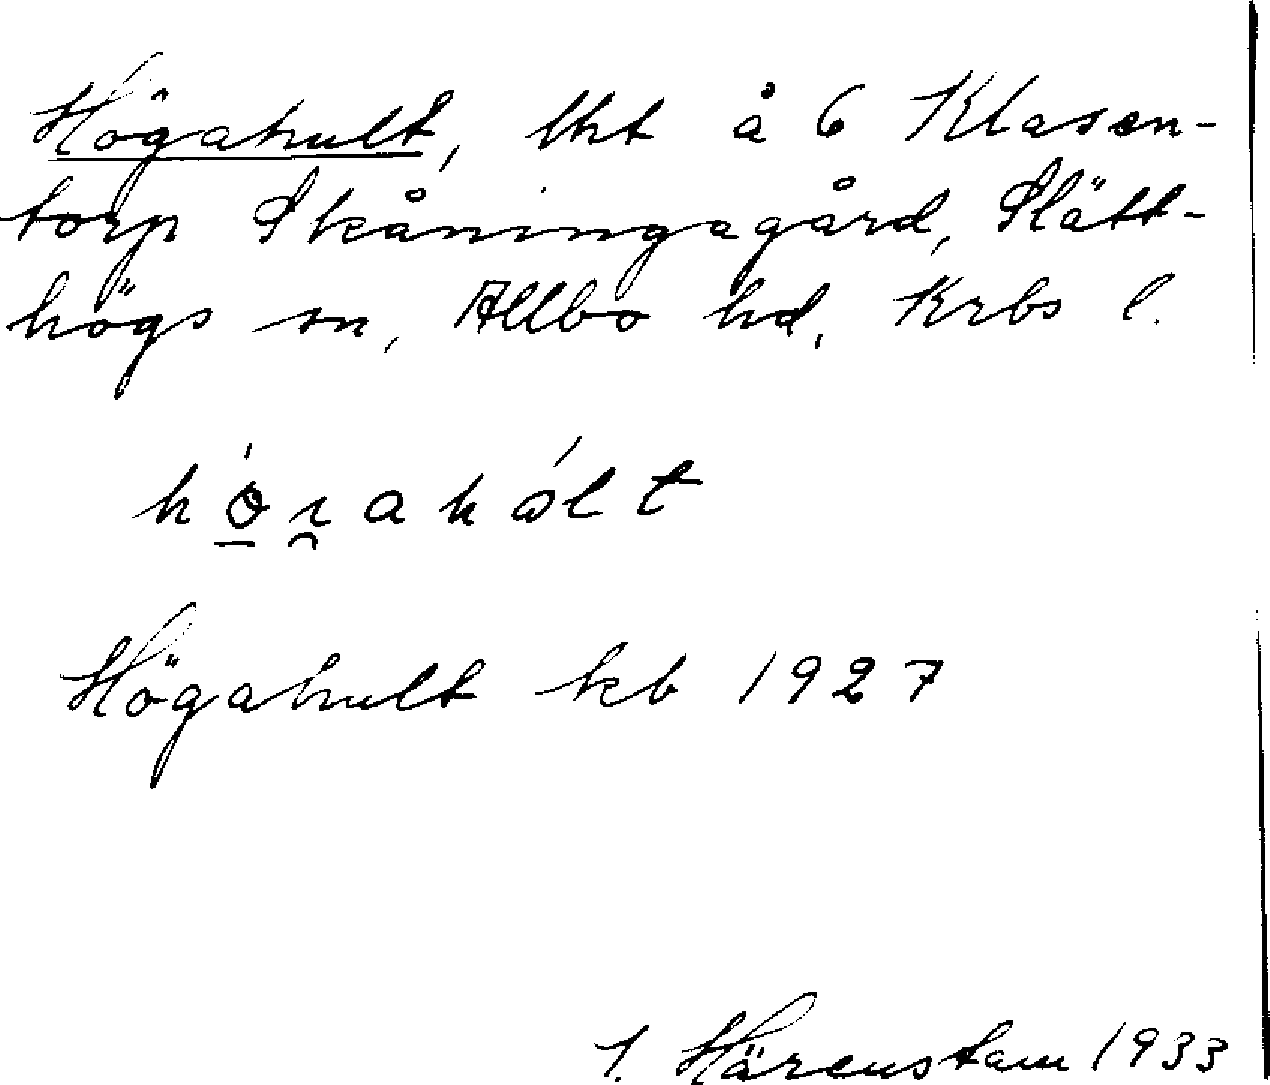 Högahult, lht å 6 Klasen-
torp Skåningagård, Slätt-
högs sn, Allbo hd, Krbs l.
Högahult kb 1927
I. Härenstam 1933